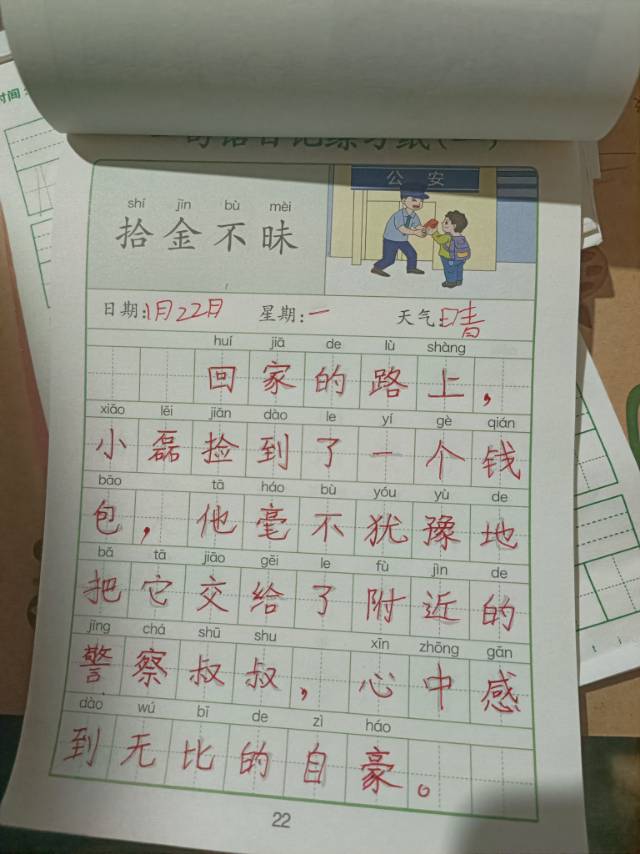 时间
shí jīn bù mèi
拾金不昧
公安
日期:1月22月 星期:一 天气:晴
huí jiā de lù shàng
回家的路上，
xiǎo lěi jiǎn dào le yí gè qián
小磊捡到了一个钱
bāo tā háo bù yóu yù de
包，他毫不犹豫地
bǎ tā jiāo gěi le fù jìn de
把它交给了附近的
jǐng chá shū shu xīn zhōng gǎn
警察叔叔，心中感
dào wú bǐ de zì háo
到无比的自豪。
22